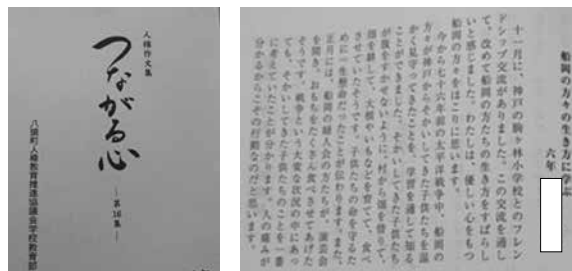 人権作文集
つながる心
～第16集～
八頭町人権教育推進協議会学校教育部
船岡の方々の生き方に学ぶ
六年
十一月に、神戸の駒ヶ林小学校とのフレン
ドシップ交流がありました。この交流を通し
て、改めて船岡の方たちの生き方をすばらし
いと感じました。わたしは、優しい心をもつ
船岡の方々をほこりに思います。
今から七十六年前の太平洋戦争中、船岡の
方々が神戸からそかいしてきた子供たちを温
かく見守ってきたことを、学習を通して知る
ことができました。そかいしてきた子供たち
が腹をすかせないように、村から畑を借りて、
畑を耕して、大根やいもなどを育てて、食べ
させていたそうです。子供たちの命を守るた
めに一生懸命だったことが伝わります。また、
正月には、船岡の婦人会の方たちが、演芸会
を開き、おもちをたくさん食べさせてあげた
そうです。戦争という大変な状況の中にあっ
ても、そかいしてきた子供たちのことを一番
に考えていたことが分かります。人の痛みが
分かるからこその行動なのだと思います。